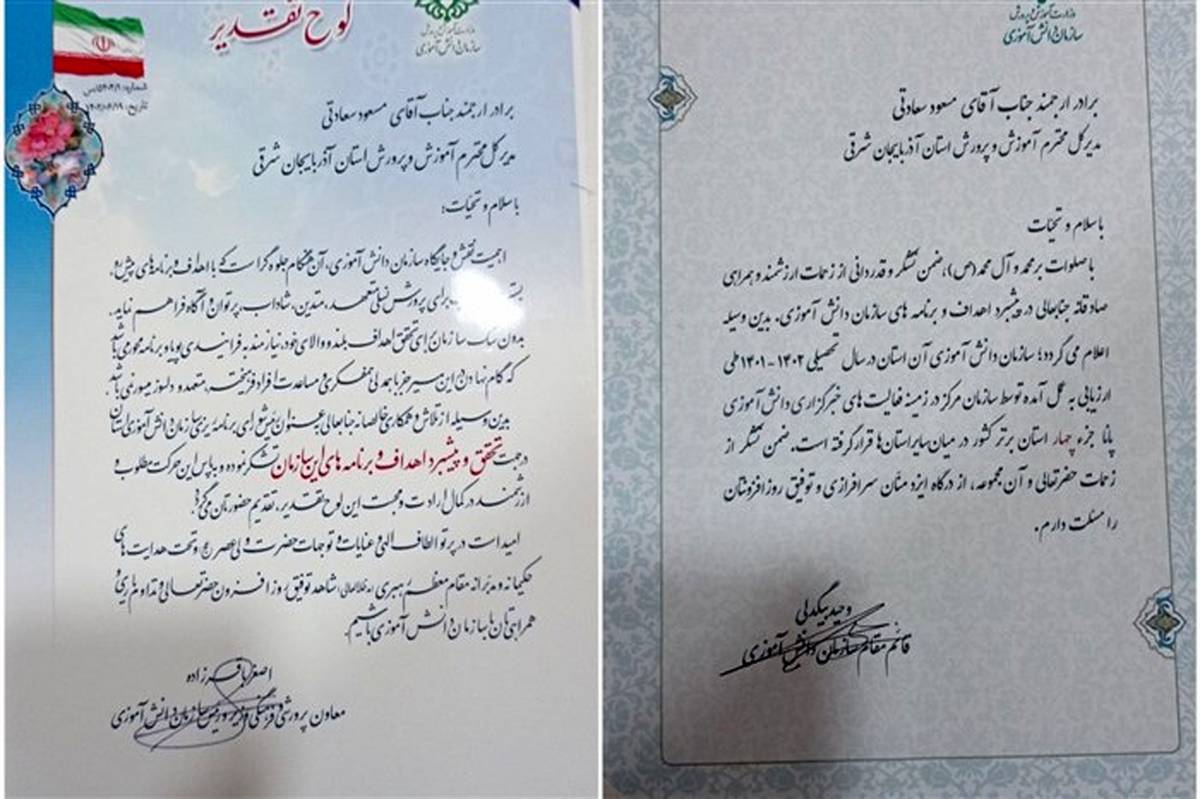 لوح تقدیر
سازمان دانش آموزی
برادر ارجمند جناب آقای مسعود سعادتی
مدیر کل محترم آموزش و پرورش استان آذربایجان شرقی
با سلام و تحیات؛
اهمیت نقش و جایگاه سازمان دانش آموزی، آن هنگام جلوه گر است که با اهداف و برنامه های پیش رو،
برای پرورش نسلی متعهد، متدین، شاداب، پرتوان و آگاه فراهم نماید.
بدون شک سازمان برای تحقق اهداف بلند و والای خود، نیازمند به فرایندی پویا و برنامه محور می باشد
که گام نهادن در این مسیر جز با همدلی، همفکری و مساعدت افراد فرهیخته، متعهد و دلسوز میسور نمی باشد.
بدین وسیله از تلاش و همکاری خالصانه جنابعالی بعنوان رئیس شورای برنامه ریزی سازمان دانش آموزی استان
در جهت تحقق و پیشبرد اهداف و برنامه های این سازمان تشکر نموده و به پاس این حرکت مطلوب و
ارزشمند در کمال ارادت و محبت این لوح تقدیر، تقدیم حضورتان می گردد.
امید است در پرتو الطاف الهی و عنایات و توجهات حضرت ولی عصر (عج) و تحت هدایت های
حکیمانه و مدبرانه مقام معظم رهبری (مدظله العالی) شاهد توفیق روز افزون حضرتعالی و تداوم یاری و
همراهی تان با سازمان دانش آموزی باشیم.
اصغر باقرزاده
معاون پرورشی و فرهنگی وزیر و رئیس سازمان دانش آموزی
وزارت آموزش و پرورش
سازمان دانش آموزی
برادر ارجمند جناب آقای مسعود سعادتی
مدیر کل محترم آموزش و پرورش استان آذربایجان شرقی
با سلام و تحیات
با صلوات بر محمد و آل محمد(ص)، ضمن تشکر و قدردانی از زحمات ارزشمند و همراهی
صادقانه جنابعالی در پیشبرد اهداف و برنامه های سازمان دانش آموزی. بدین وسیله
اعلام می گردد؛ سازمان دانش آموزی آن استان در سال تحصیلی ۱۴۰۲-۱۴۰۱ طی
ارزیابی به عمل آمده توسط سازمان مرکز در زمینه فعالیت های خبرگزاری دانش آموزی
پانا جزء چهار استان برتر کشور در میان سایر استان ها قرار گرفته است. ضمن تشکر از
زحمات حضرتعالی و آن مجموعه، از درگاه ایزد منّان سرافرازی و توفیق روز افزونتان
را مسئلت دارم.
وحید بیگدلی
قائم مقام سازمان دانش آموزی